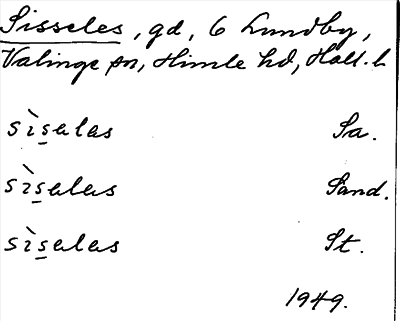 Sisseles, gd, 6 Lundby,
Valinge sn, Himle hd, Hall. l.
sìsalas Sa.
sìsalas Sand.
sìsalas St.
1949.